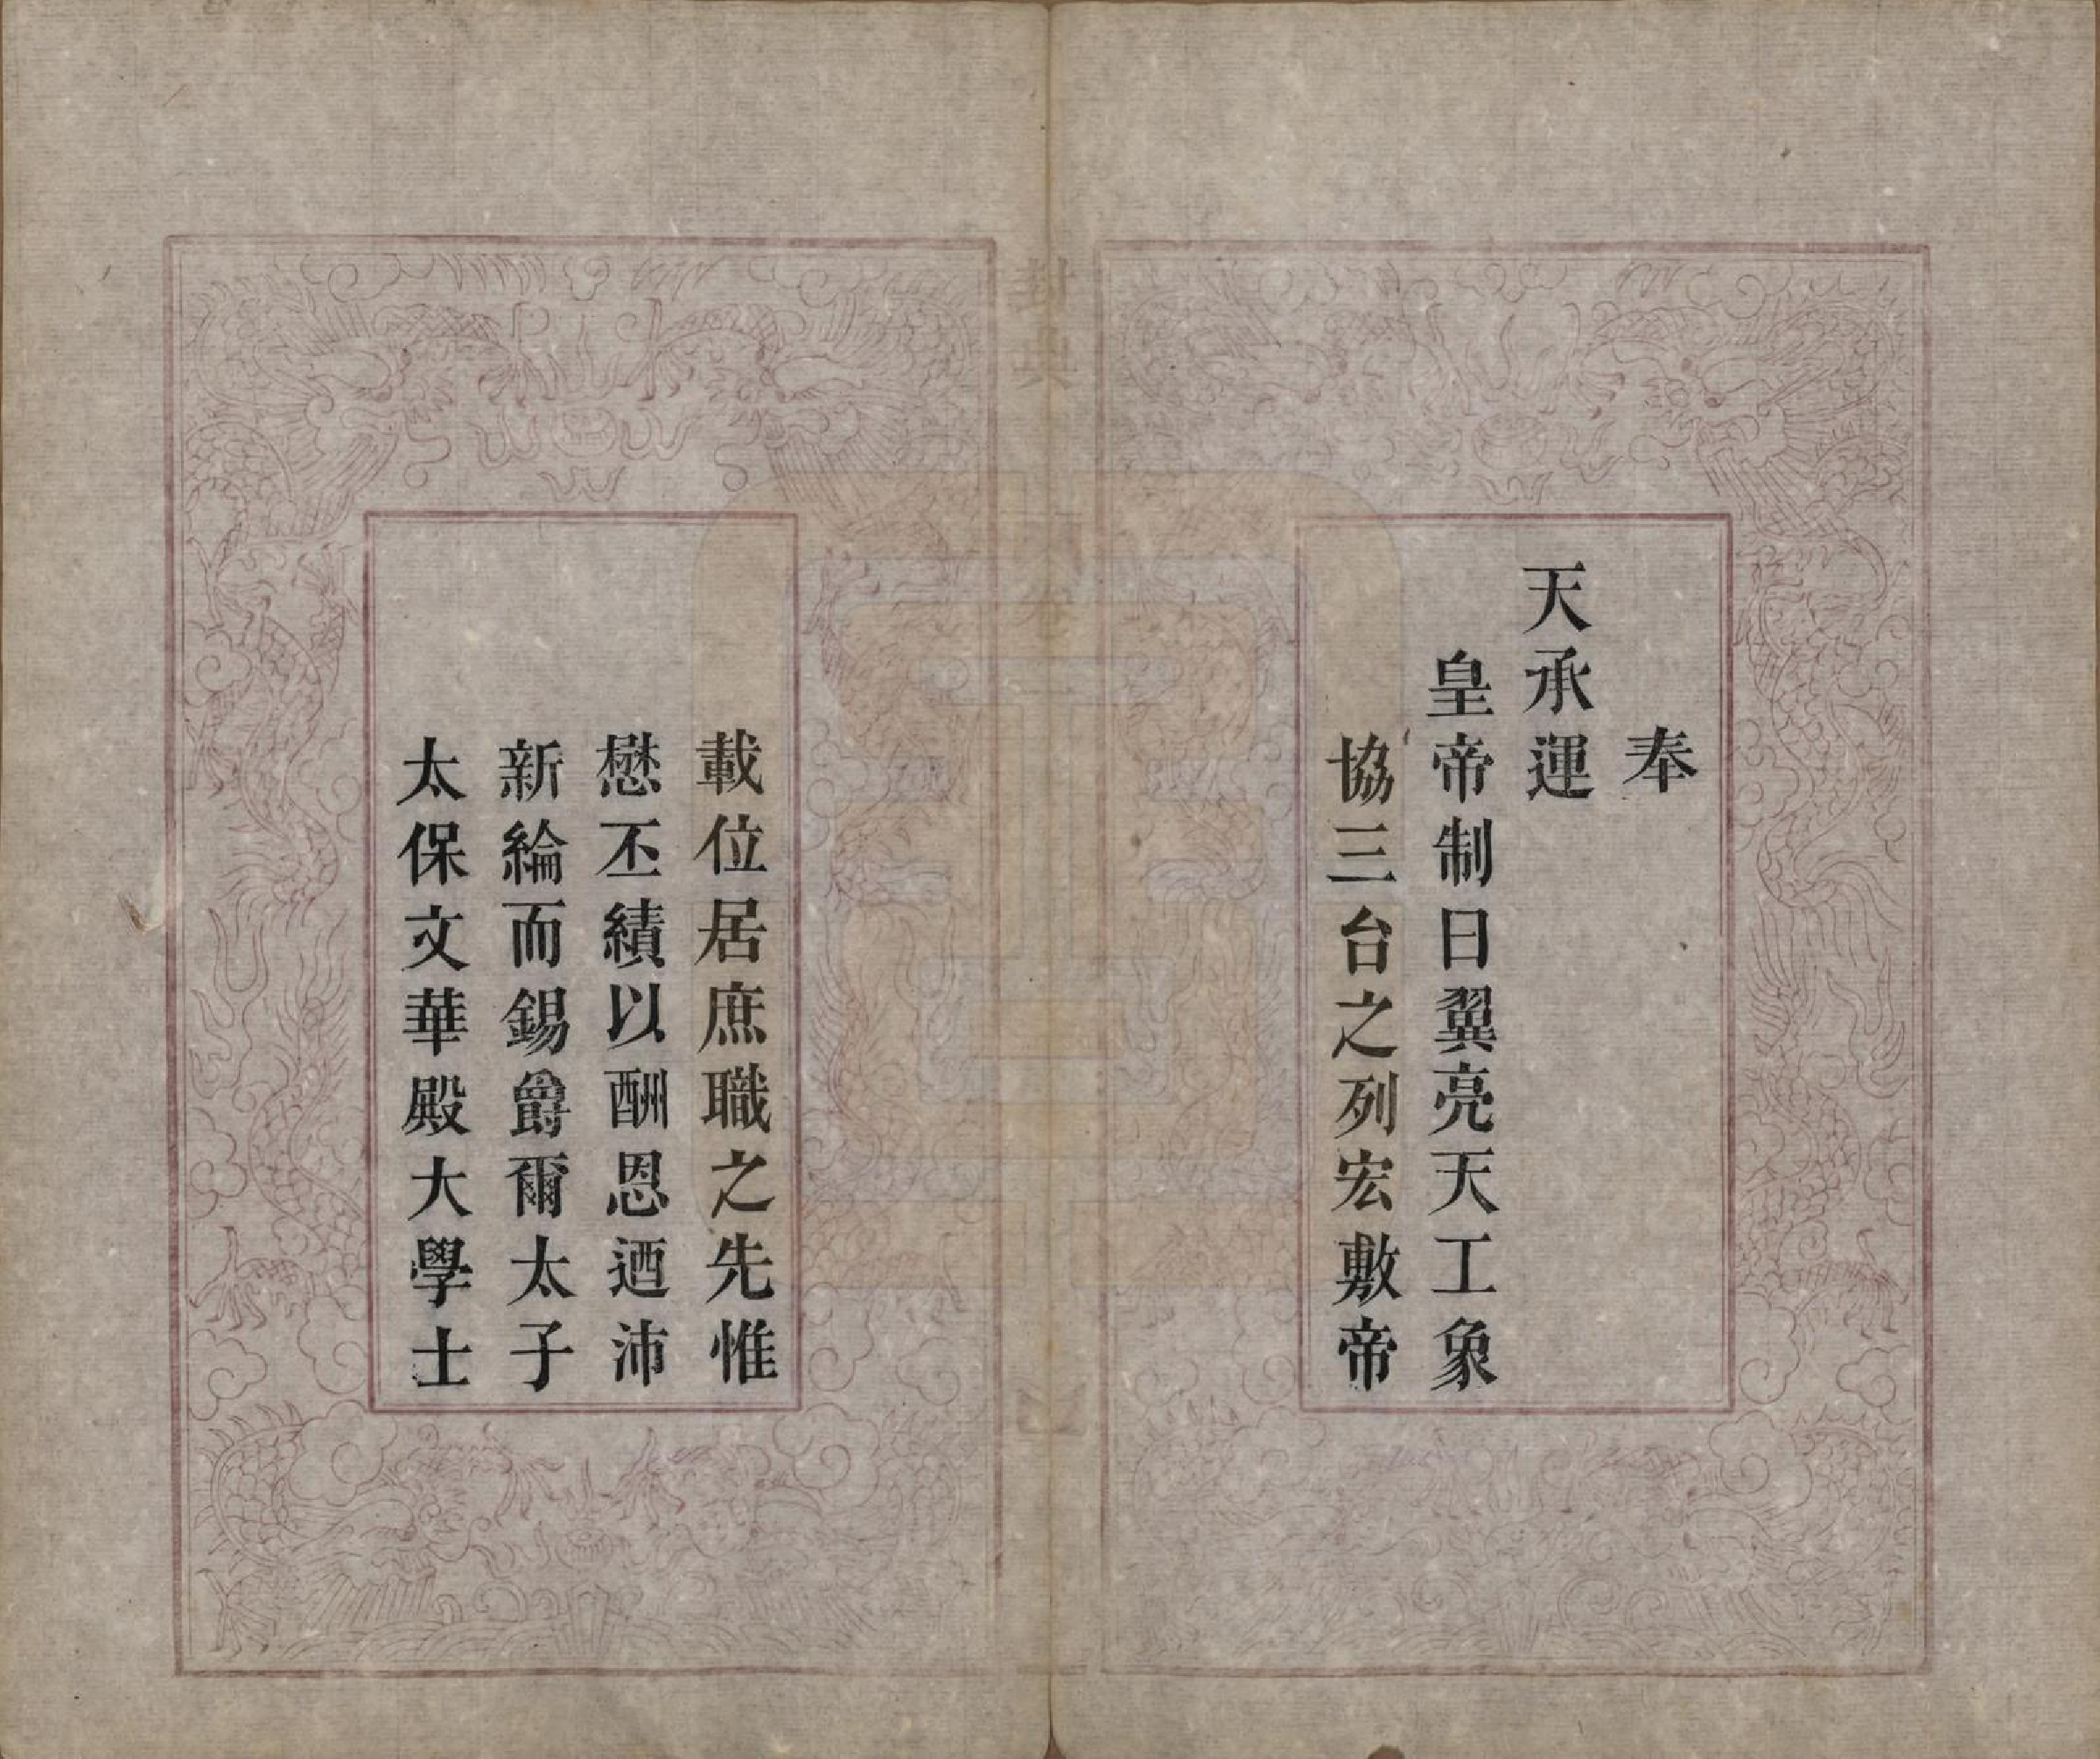 奉
天承運
皇帝制曰翼亮天工象
協三台之列宏敷帝
載位居庶職之先惟
懋丕績以酬恩迺沛
新綸而錫爵爾太子
太保文華殿大學士